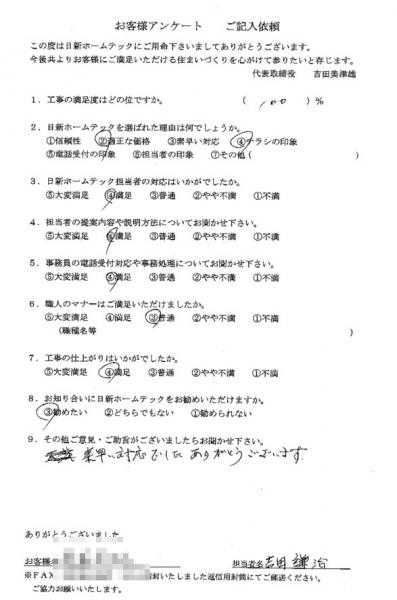 お客様アンケート　ご記入依頼
この度は日新ホームテックにご用命下さいましてありがとうございます。
今後共よりお客様にご満足いただける住まいづくりを心がけて参りたいと存じます。
代表取締役　吉田美津雄
1．工事の満足度はどの位ですか。　（　100　）％
2．日新ホームテックを選ばれた理由は何でしょうか。
①信頼性　②適正な価格　③素早い対応　④チラシの印象
⑤電話受付の印象　⑥担当者の印象　⑦その他（　）
3．日新ホームテック担当者の対応はいかがでしたか。
⑤大変満足　④満足　③普通　②やや不満　①不満
4．担当者の提案内容や説明方法についてお聞かせ下さい。
⑤大変満足　④満足　③普通　②やや不満　①不満
5．事務員の電話受付対応や事務処理についてお聞かせ下さい。
⑤大変満足　④満足　③普通　②やや不満　①不満
6．職人のマナーはご満足いただけましたか。
⑤大変満足　④満足　③普通　②やや不満　①不満
(職種名等　)
7．工事の仕上がりはいかがでしたか。
⑤大変満足　④満足　③普通　②やや不満　①不満
8．お知り合いに日新ホームテックをお勧めいただけますか。
③勧めたい　②どちらでもない　①勧められない
9．その他ご意見・ご助言がございましたらお聞かせ下さい。
素早い対応でした ありがとうございます
ありがとうございました
お客様　担当者名 吉田 謙治
※FAX　封いたしました返信用封筒にてご郵送ください。
ご協力お願いいたします。